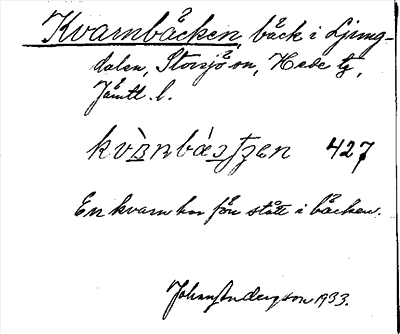 Kvarnbäcken, bäck i Ljung-
dalen, Storsjö sn, Hede tg,
Jämtl. l.
427
En kvarn har förr stått i bäcken.
Johan Anderzson 1933.